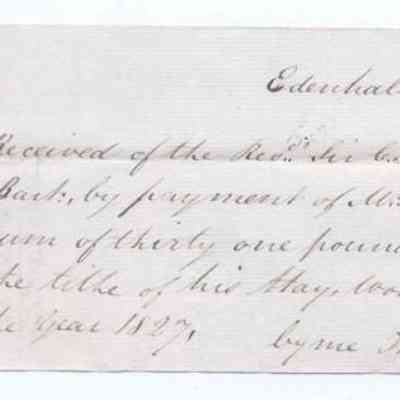 Edenhal
Received of the Revd. Sir C
Bart:, by payment of Mr
um of thirty one poun
he tithe of his Hay, Woo
he Year 1827,      by me